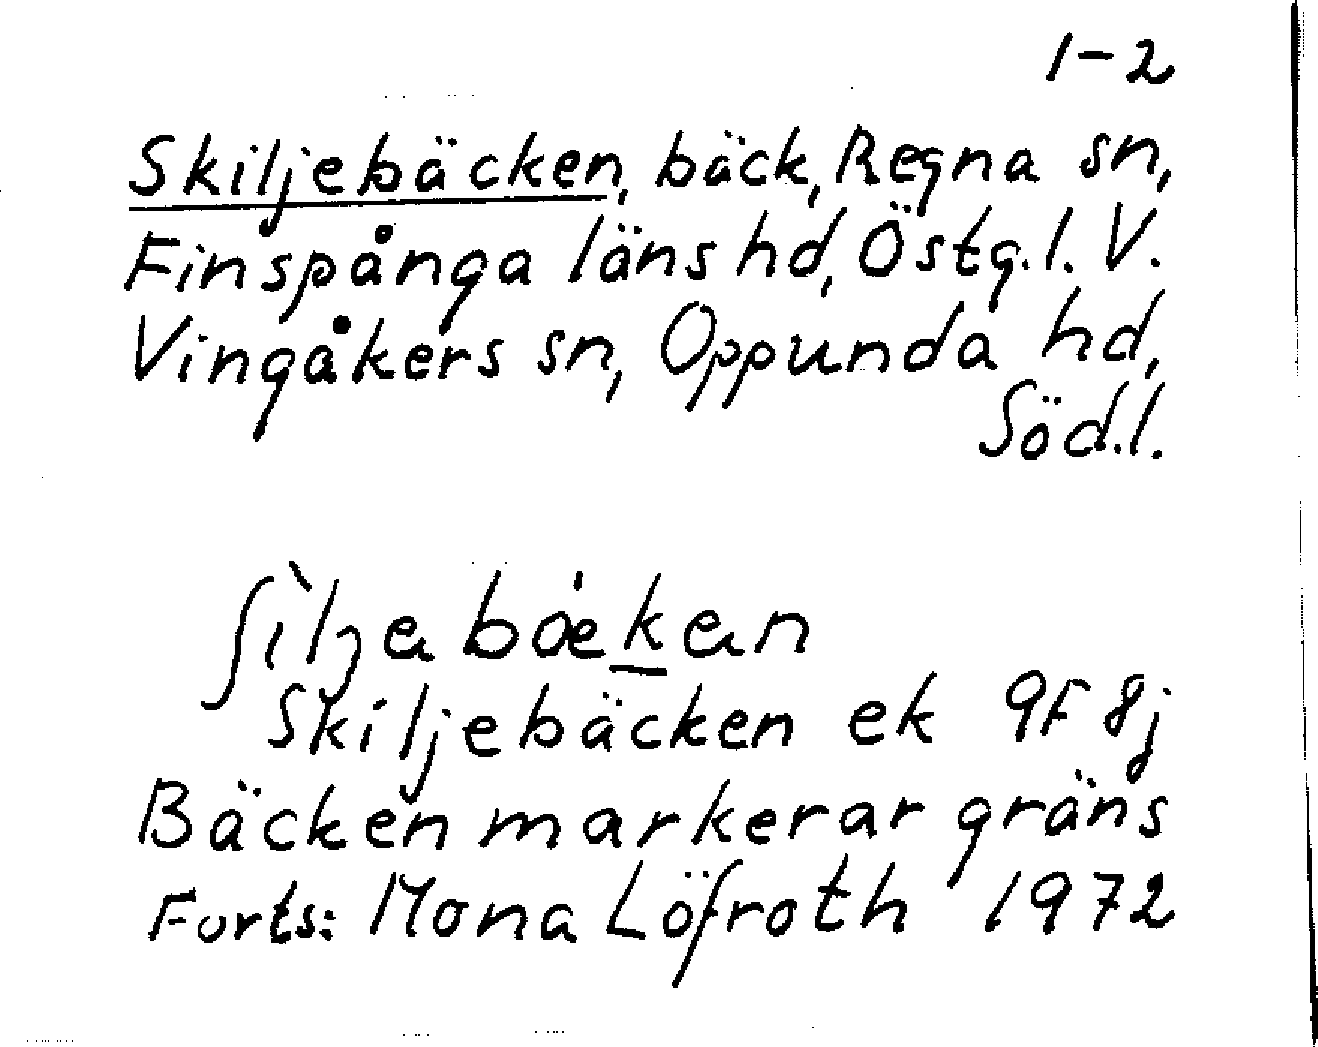 1-2
Skiljebäcken, bäck, Regna sn,
Finspånga läns hd, Östg.l. V.
Vingåkers sn, Oppunda hd,
Söd.l.
ʃìlʒa bα̇kan
Skiljebäcken ek 9F 8j
Bäcken markerar gräns
Forts: Mona Löfroth 1972